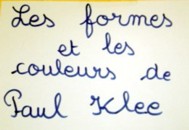 Les formes
et les
couleurs de
Paul Klee